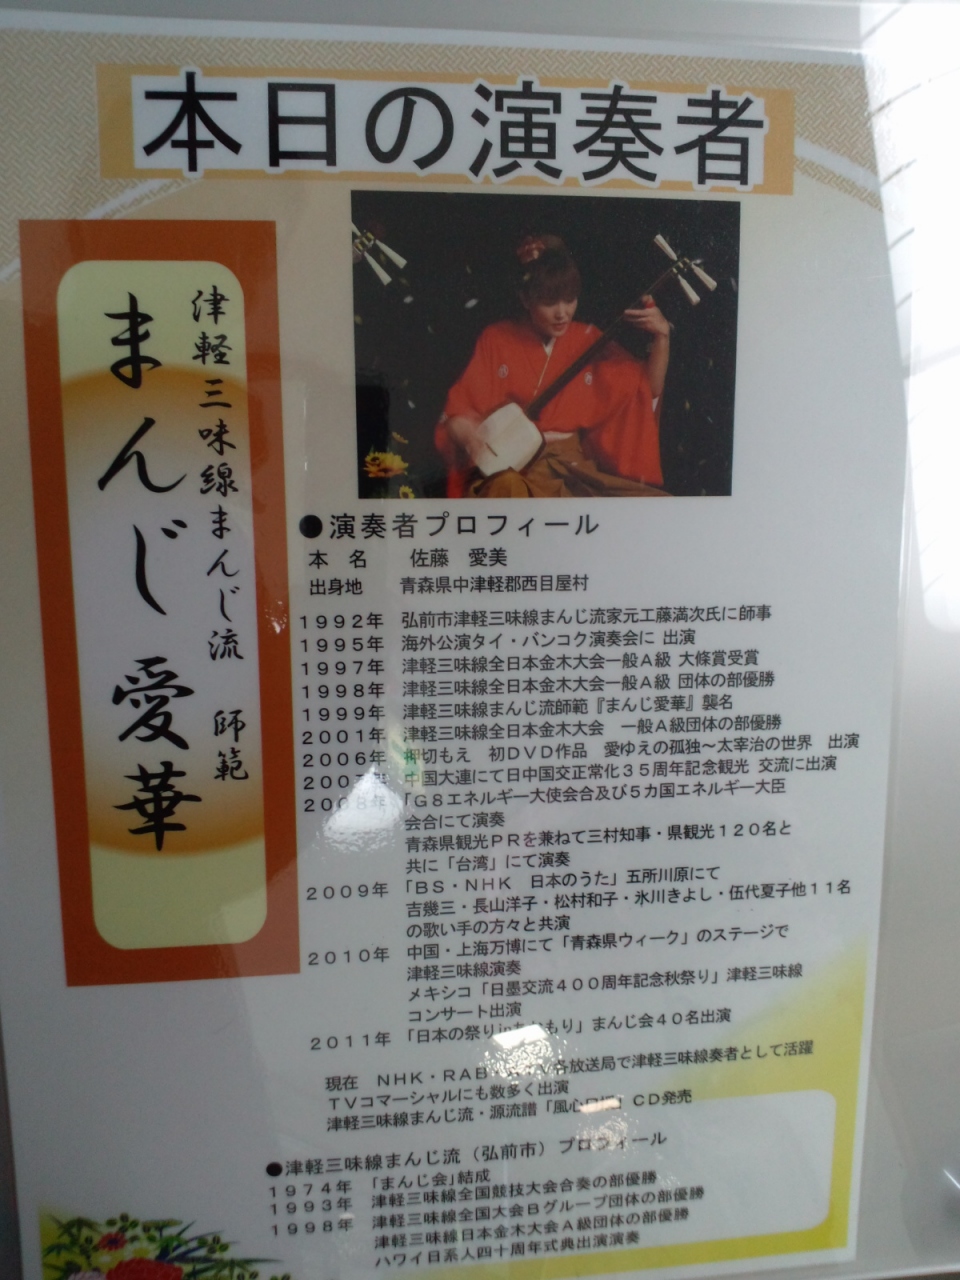 本日の演奏者
津軽三味線まんじ流 師範
まんじ愛華
●演奏者プロフィール
本 名 佐藤 愛美
出身地 青森県中津軽郡西目屋村
1992年 弘前市津軽三味線まんじ流家元工藤満次氏に師事
1995年 海外公演タイ・バンコク演奏会に 出演
1997年 津軽三味線全日本金木大会一般A級 大條賞受賞
1998年 津軽三味線全日本金木大会一般A級 団体の部優勝
1999年 津軽三味線まんじ流師範『まんじ愛華』襲名
2001年 津軽三味線全日本金木大会 一般A級団体の部優勝
2006年 押切もえ 初DVD作品 愛ゆえの孤独～太宰治の世界 出演
2007年 中国大連にて日中国交正常化35周年記念観光 交流に出演
2008年 「G8エネルギー大使会合及び5カ国エネルギー大臣
会合にて演奏
青森県観光PRを兼ねて三村知事・県観光120名と
共に「台湾」にて演奏
2009年 「BS・NHK 日本のうた」五所川原にて
吉幾三・長山洋子・松村和子・氷川きよし・伍代夏子他11名
の歌い手の方々と共演
2010年 中国・上海万博にて「青森県ウィーク」のステージで
津軽三味線演奏
メキシコ「日墨交流400周年記念秋祭り」津軽三味線
コンサート出演
2011年 「日本の祭りinあおもり」まんじ会40名出演
現在 NHK・RAB 各放送局で津軽三味線奏者として活躍
TVコマーシャルにも数多く出演
津軽三味線まんじ流・源流譜「風心 」CD発売
●津軽三味線まんじ流（弘前市）プロフィール
1974年 「まんじ会」結成
1993年 津軽三味線全国競技大会合奏の部優勝
1998年 津軽三味線全国大会Bグループ団体の部優勝
津軽三味線日本金木大会A級団体の部優勝
ハワイ日系人四十周年式典出演演奏